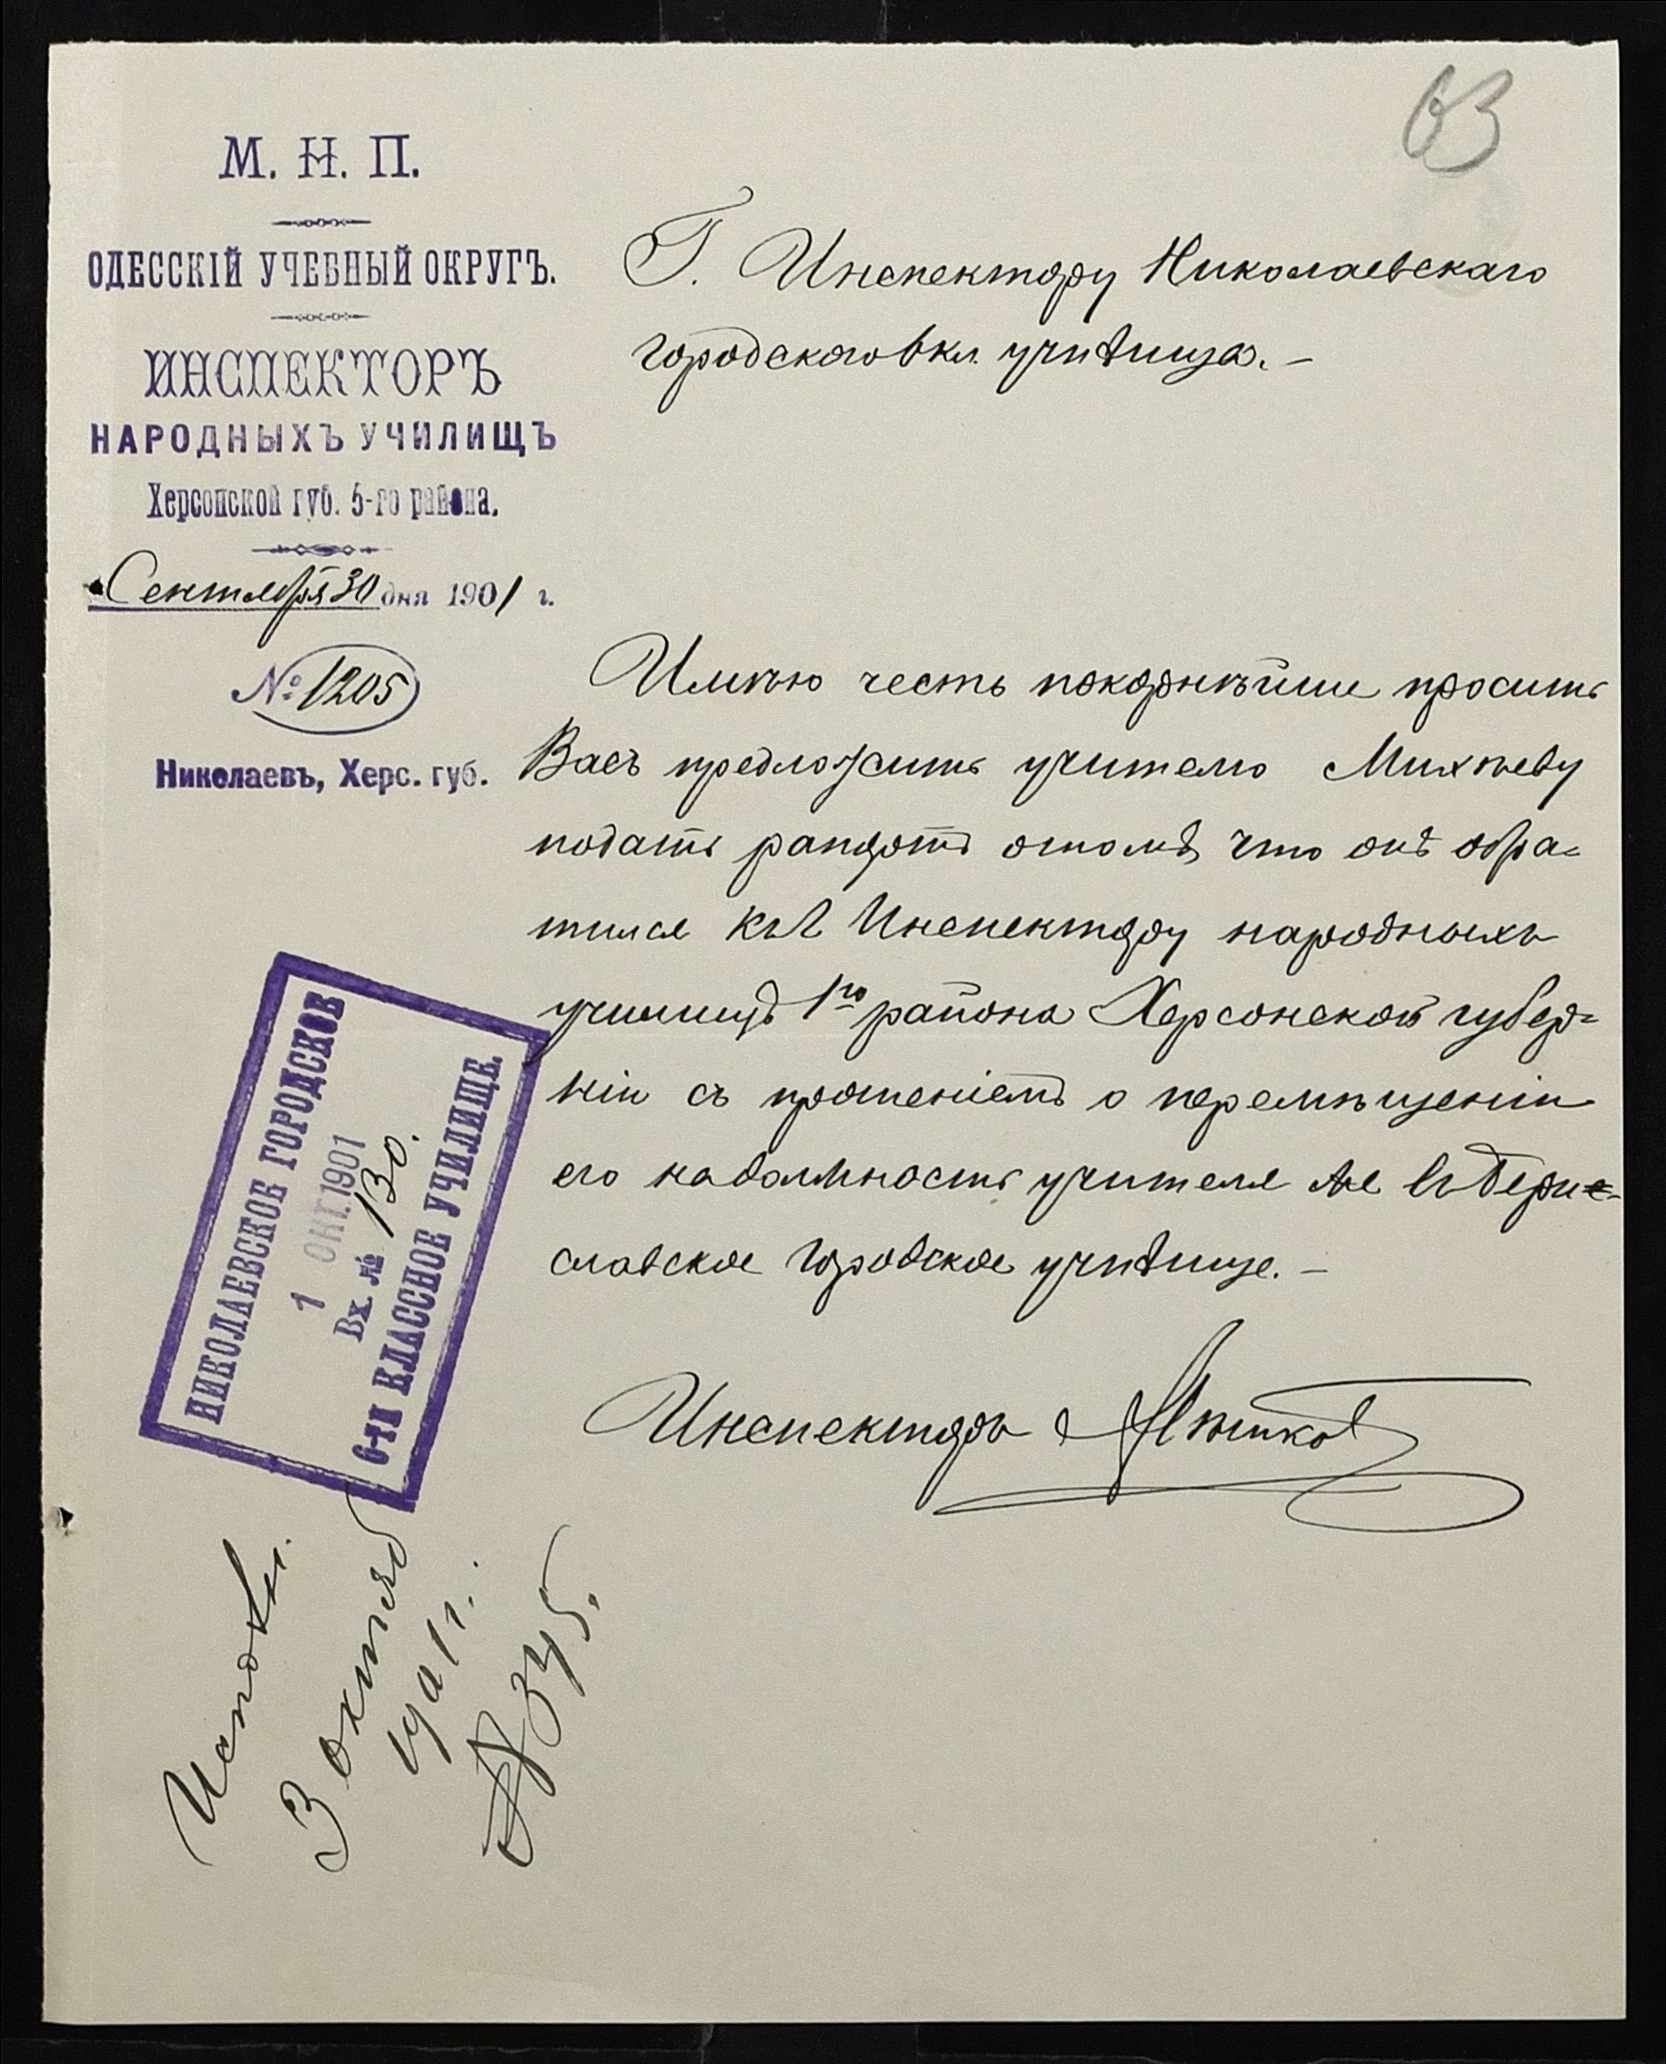 63
М. Н. П.
ОДЕССКІЙ УЧЕБНЫЙ ОКРУГЪ.
ИНСПЕКТОРЪ
НАРОДНЫХЪ УЧИЛИЩЪ
Херсонской губ. 5-го района.
Сентября 30 дня 1901 г.
№ 1205
Николаевъ, Херс. губ.
Г. Инспектору Николаевскаго
городского 6 кл. училища. –
Имѣю честь покорнѣйше просить
Васъ предложить учителю Михѣеву
подать рапортъ о томъ, что онъ обра=
тился къ Инспектору народныхъ
училищъ 1го района Херсонской губер=
ніи съ прошеніемъ о перемѣщеніи
его на должность учителя въ Бери-
славское городское училище. –
Инспекторъ
НИКОЛАЕВСКОЕ ГОРОДСКОЕ
1 ОКТ. 1901
Вх. № 130.
6-ТИ КЛАССНОЕ УЧИЛИЩЕ.
Исполн.
3 октяб
1901 г.
№ 345.